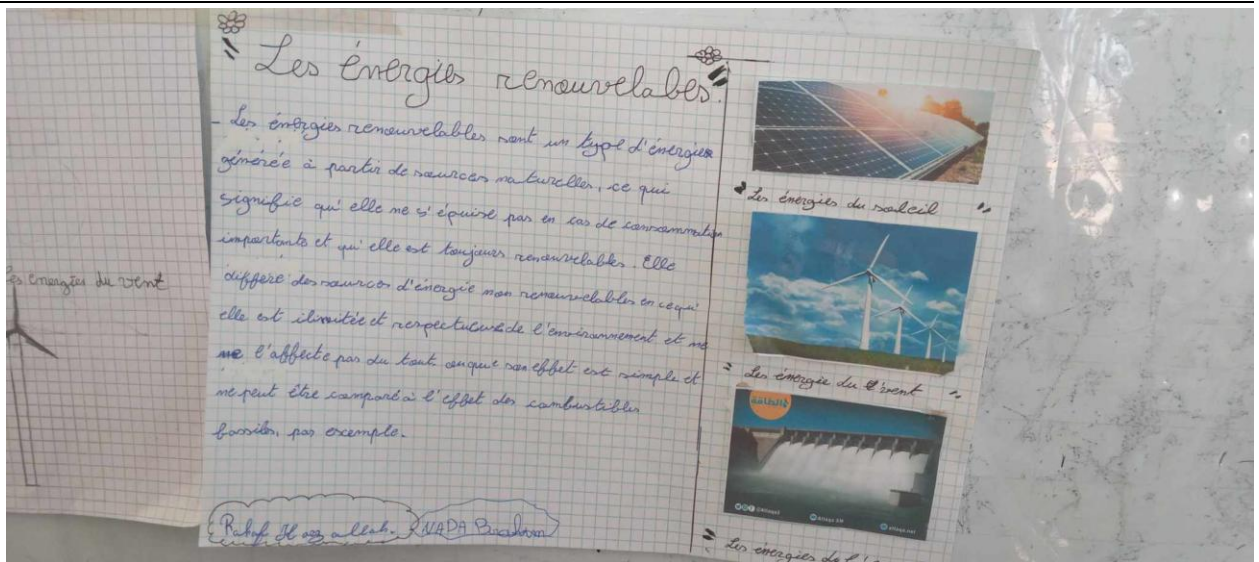 Les énergies renouvelables.
- Les énergies renouvelables sont un type d'énergies
générée à partir de sources naturelles, ce qui
signifie qu'elle ne s'épuise pas en cas de consommation
importants et qu'elle est toujours renouvelables. Elle
diffère des sources d'énergie non renouvelables en ce qu'
elle est illimitée et respectueuse de l'environnement et ne
ne l'affecte pas du tout ou que son effet est simple et
ne peut être comparé à l'effet des combustibles
fossiles, par exemple.
NADA
Les énergies du soleil
Les énergie du vent
Les énergies de l'
es energies du vent